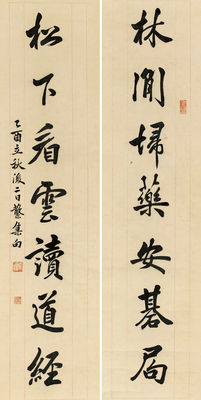 林間埽藥安碁局
松下看雲讀道經
乙酉立秋後二日繁集句